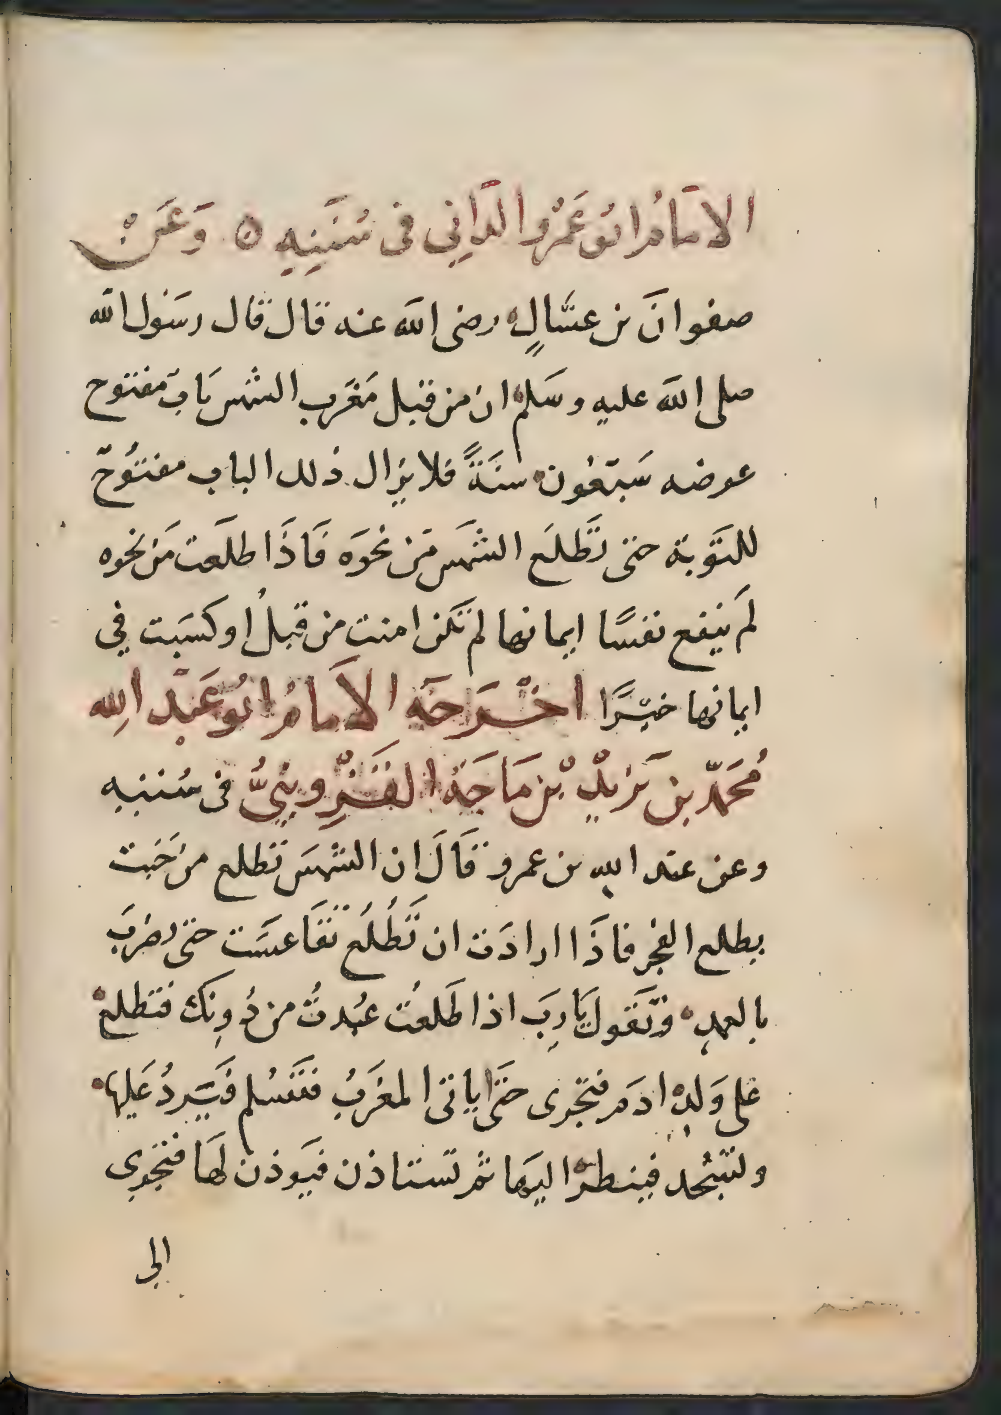 الامام ابو عمرو الداني في سننه ه وعن
صفوان بن عسال رضى الله عنه قال قال رسول الله
صلى الله عليه وسلم ان من قبل مغرب الشمس باب مفتوح
عرضه سبعون سنة فلا يزال ذلك الباب مفتوح
للتوبة حتى تطلع الشمس من نحوه فاذا طلعت من نحوه
لم ينفع نفسا ايمانها لم تكن امنت من قبل او كسبت في
ايمانها خيرا اخرجه الامام ابو عبد الله
محمد بن يزيد بن ماجة القزويني في سننه
وعن عبد الله بن عمرو قال ان الشمس تطلع من حيث
يطلع الفجر فاذا ارادت ان تطلع تقاعست حتى تضرب
بالعمد وتقول يا رب اذا طلعت عبدت من دونك فتطلع
على ولد ادم فتجرى حتى ياتى المغرب فتسلم فيرد عليها
وتسجد فينظر اليها ثم تستاذن فيوذن لها فتجرى
الى